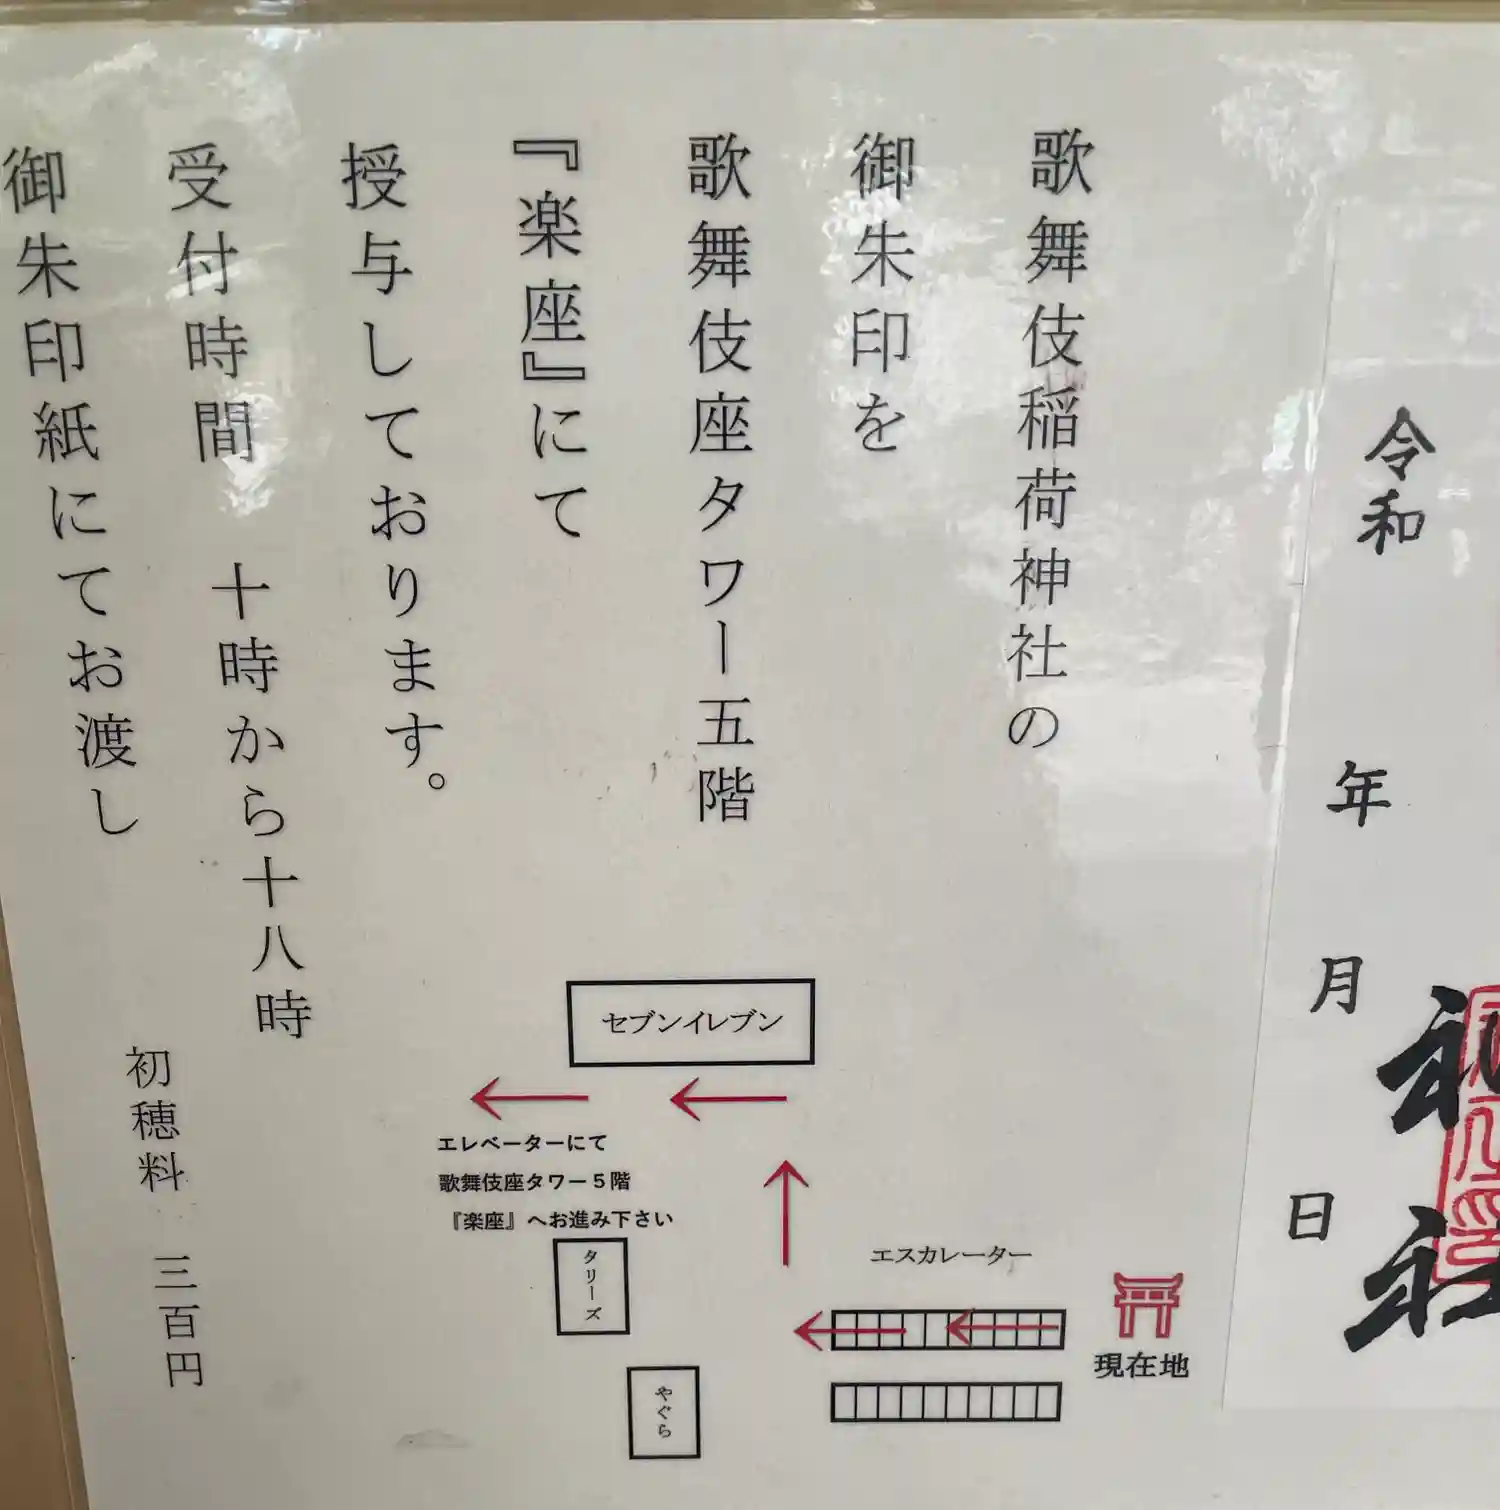 令和　年　月　日
社
歌舞伎稲荷神社の
御朱印を
歌舞伎座タワー五階
『楽座』にて
授与しております。
受付時間　十時から十八時
御朱印紙にてお渡し
初穂料　三百円
セブンイレブン
エレベーターにて
歌舞伎座タワー５階
『楽座』へお進み下さい
タリーズ
やぐら
エスカレーター
現在地